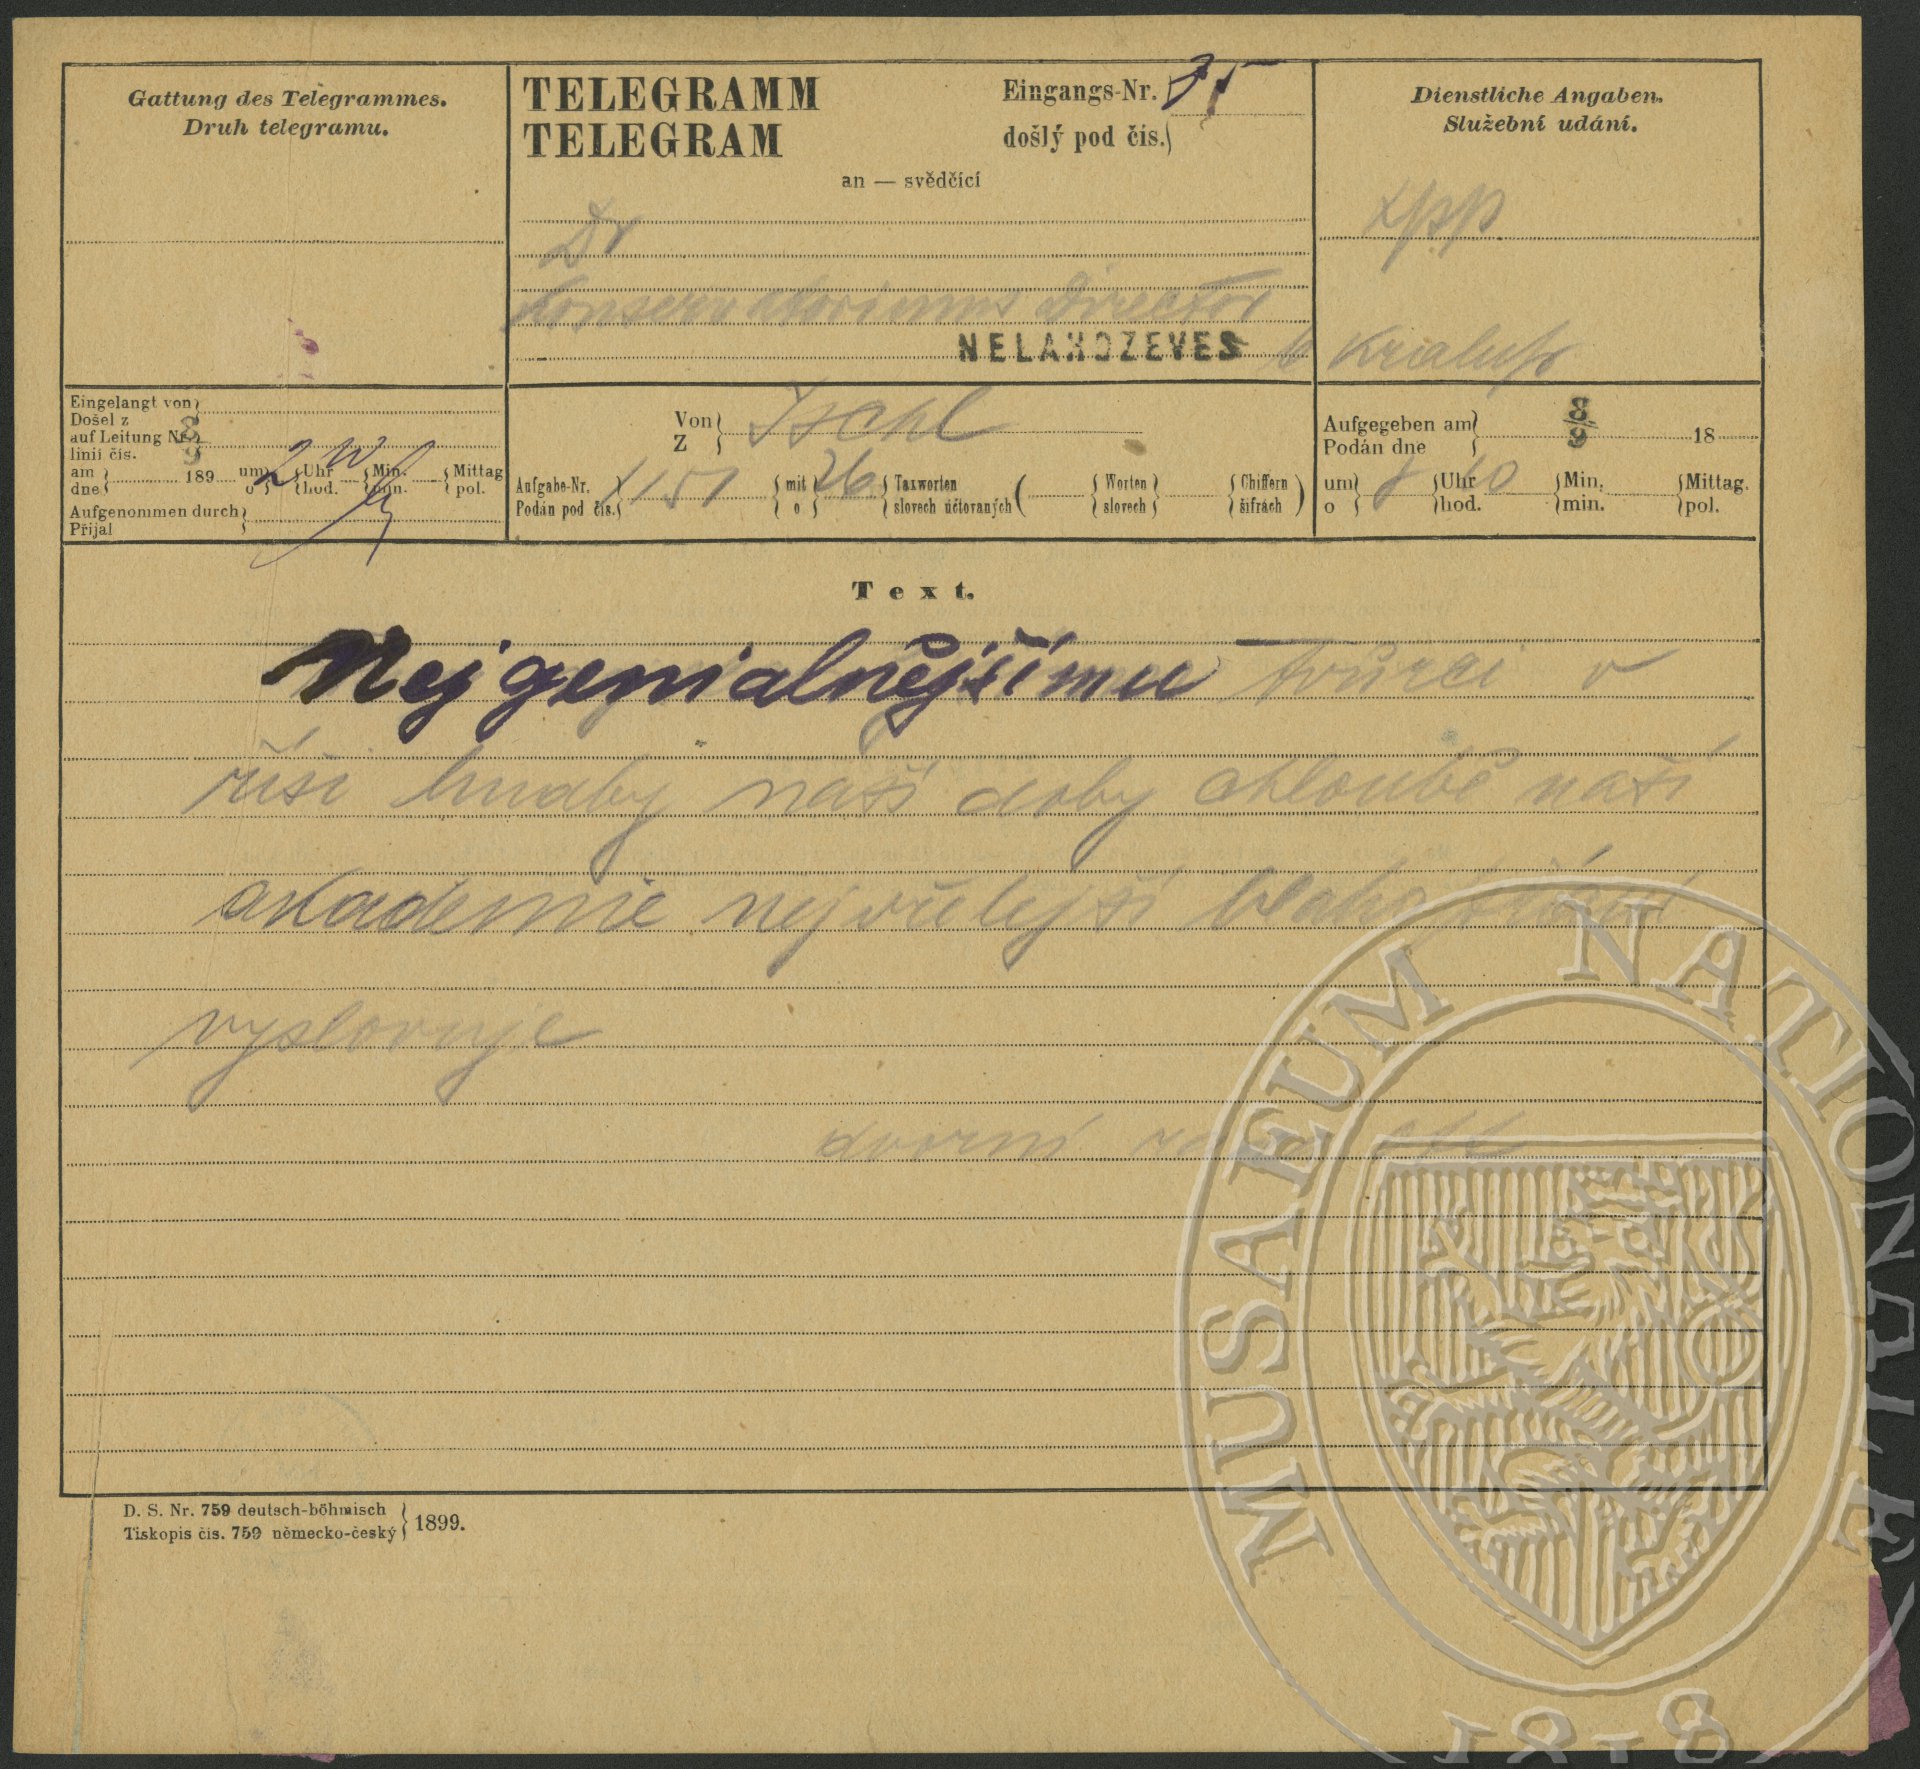 Gattung des Telegrammes.
Druh telegramu.
TELEGRAMM
TELEGRAM
Eingangs-Nr.
došlý pod čís.
an — svědčící
Dienstliche Angaben.
Služební udání.
Dr
Konservatoriums Director
NELAHOZEVES b Kralup
Eingelangt von
Došel z
auf Leitung Nr.
linii čís.
8/9
am
dne
189
um
o
2
Uhr
hod.
Min.
min.
Mittag
pol.
Aufgenommen durch
Přijal
Von
Z
Ischl
Aufgabe-Nr.
Podán pod čís.
1151
mit
o
26
Taxworten
slovech účtovaných
Worten
slovech
Chiffern
šifrách
Aufgegeben am
Podán dne
8/9
18
um
o
8
Uhr
hod.
10
Min.
min.
Mittag.
pol.
Text.
Nejgenialnějšímu tvůrci v
říši hudby naší doby chloubě naší
akademie nejvřelejší blahopřání
vyslovuje
dvorní rada
D. S. Nr. 759 deutsch-böhmisch
Tiskopis čís. 759 německo-český
1899.
MUSAEUM NATIONALE
1818